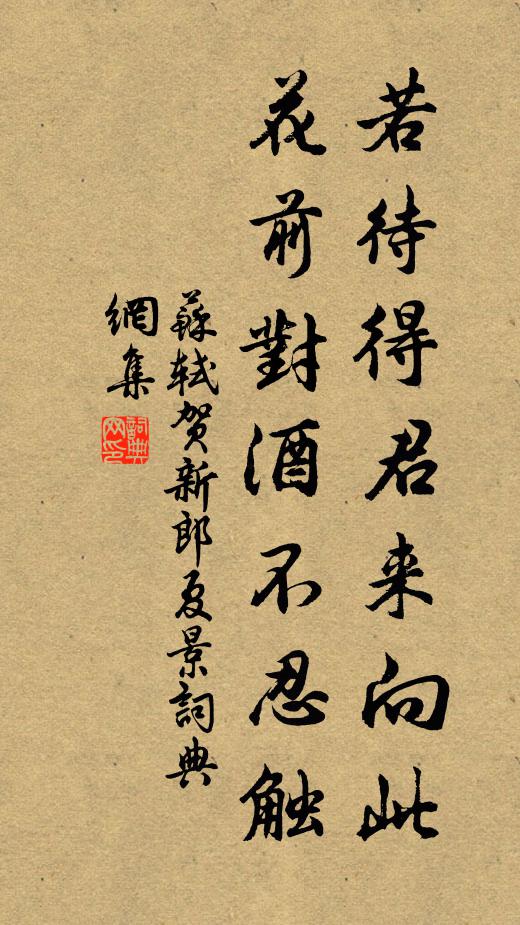 若待得君来向此
花前對酒不忍触
蘇轼贺新郎夏景詞典
網集
詞典
网印